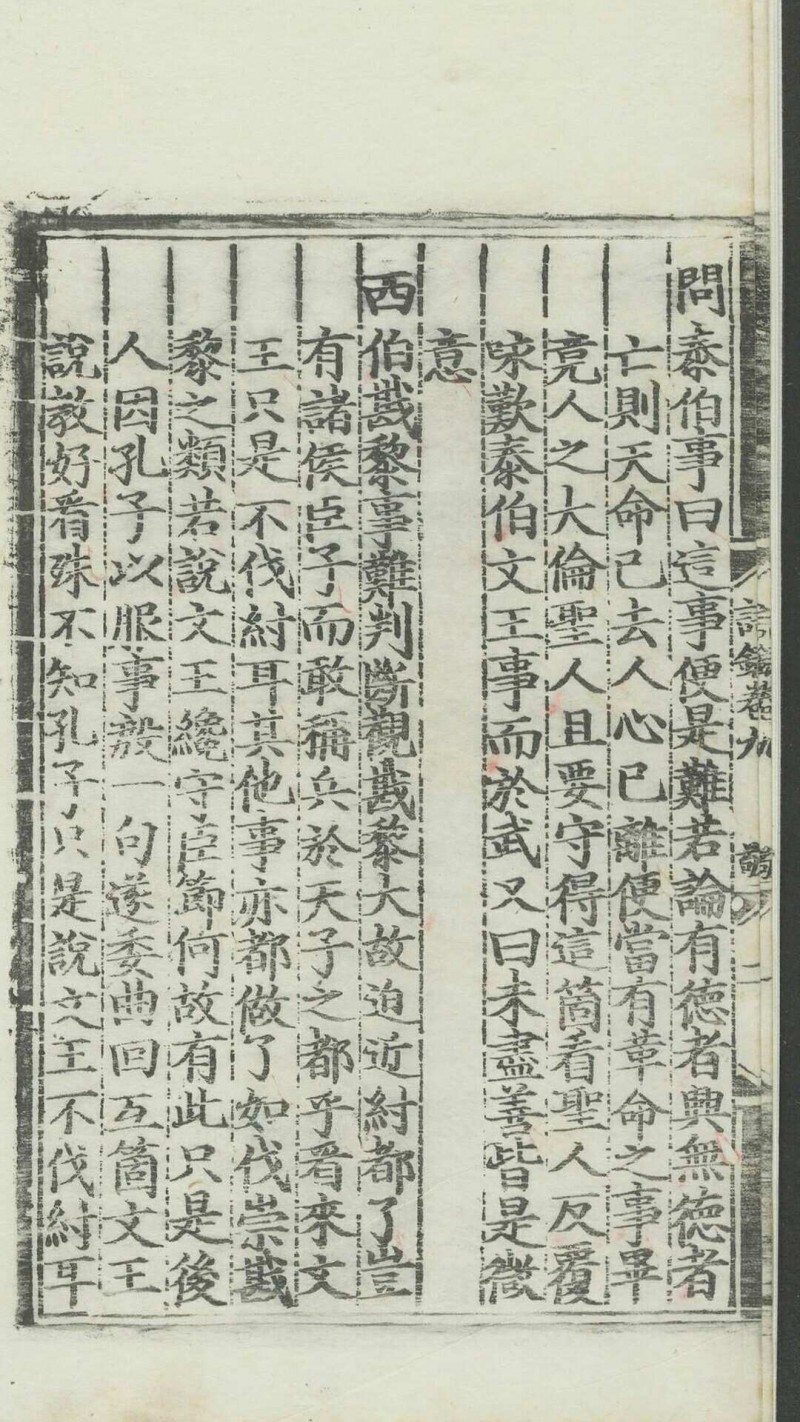 問泰伯事曰這事便是難若論有德者興無德者
亡則天命已去人心已離便當有革命之事畢
竟人之大倫聖人且要守得這箇看聖人反覆
味歎泰伯文王事而於武又曰未盡善皆是微
意
西伯戡黎事難判斷觀戡黎大故迫近紂都了豈
有諸侯臣子而敢稱兵於天子之都乎看來文
王只是不伐紂耳其他事亦都做了如伐崇戡
黎之類若說文王纔守臣節何故有此只是後
人因孔子以服事殷一句遂委曲回互箇文王
說教好看殊不知孔子只是說文王不伐紂耳
卷九
二